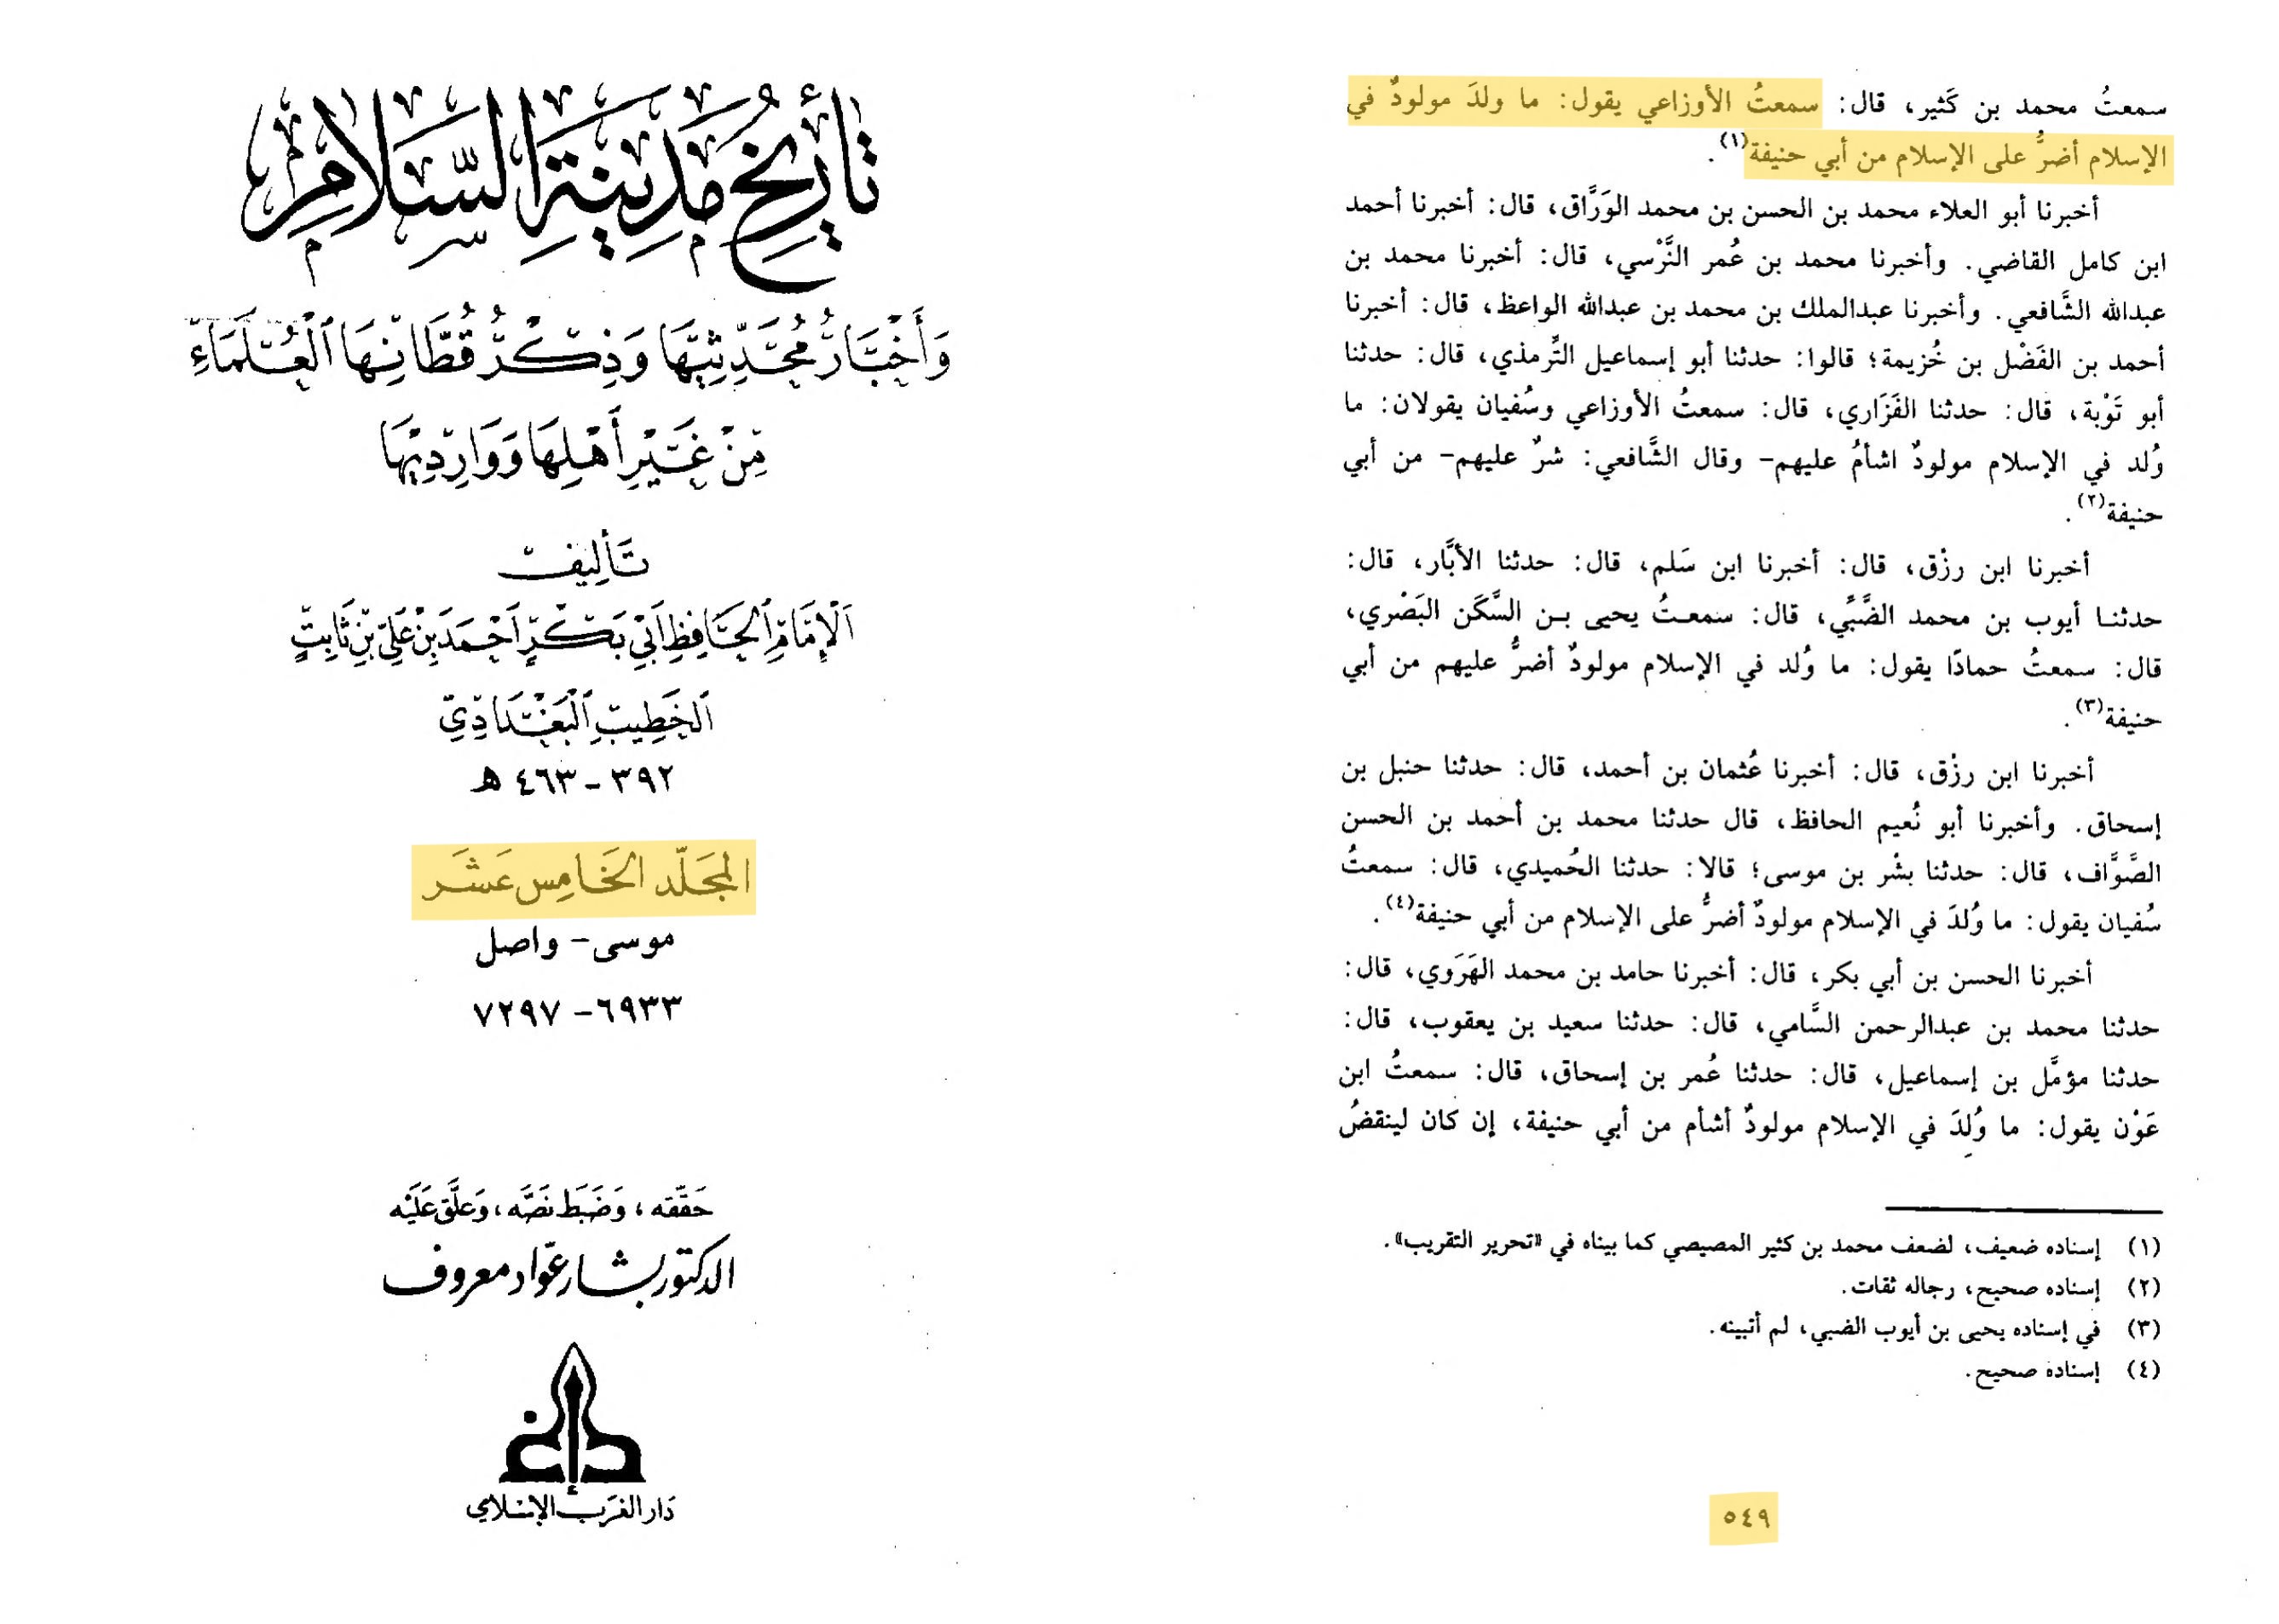 تأريخ مدينة السلام
وَأَخْبَارُ مُحَدِّثِيهَا وَذِكْرُ قُطَّانِهَا الْعُلَمَاءِ
مِنْ غَيْرِ أَهْلِهَا وَوَارِدِيهَا
تَأليف
الْإِمَامِ الْحَافِظِ أَبِي بَكْرٍ أَحْمَدَ بْنِ عَلِيِّ بْنِ ثَابِتٍ
الْخَطِيبِ الْبَغْدَادِيِّ
٣٩٢ - ٤٦٣ هـ
المجَلّد الخَامِس عَشَر
موسى - واصل
٦٩٣٣ - ٧٢٩٧
حَقّقه، وَضَبَط نَصَّه، وَعلَّق عَلَيْه
الدكتور بشار عوّاد معروف
دَار الغَرب الإسْلامي
سمعتُ محمد بن كَثير، قال: سمعتُ الأوزاعي يقول: ما ولدَ مولودٌ في
الإسلام أضرُّ على الإسلام من أبي حنيفة(١).
أخبرنا أبو العلاء محمد بن الحسن بن محمد الوَرَّاق، قال: أخبرنا أحمد
ابن كامل القاضي. وأخبرنا محمد بن عُمر النَّرْسي، قال: أخبرنا محمد بن
عبدالله الشَّافعي. وأخبرنا عبدالملك بن محمد بن عبدالله الواعظ، قال: أخبرنا
أحمد بن الفَضْل بن خُزيمة؛ قالوا: حدثنا أبو إسماعيل التِّرمذي، قال: حدثنا
أبو تَوْبة، قال: حدثنا الفَزَاري، قال: سمعتُ الأوزاعي وسُفيان يقولان: ما
وُلد في الإسلام مولودٌ اشأمُ عليهم- وقال الشَّافعي: شرٌ عليهم- من أبي
حنيفة(٢).
أخبرنا ابن رزْق، قال: أخبرنا ابن سَلم، قال: حدثنا الأبَّار، قال:
حدثنا أيوب بن محمد الضَّبِّي، قال: سمعتُ يحيى بن السَّكَن البَصْري،
قال: سمعتُ حمادًا يقول: ما وُلد في الإسلام مولودٌ أضرُّ عليهم من أبي
حنيفة(٣).
أخبرنا ابن رزْق، قال: أخبرنا عُثمان بن أحمد، قال: حدثنا حنبل بن
إسحاق. وأخبرنا أبو نُعيم الحافظ، قال حدثنا محمد بن أحمد بن الحسن
الصَّوَّاف، قال: حدثنا بشْر بن موسى؛ قالا: حدثنا الحُميدي، قال: سمعتُ
سُفيان يقول: ما وُلدَ في الإسلام مولودٌ أضرُّ على الإسلام من أبي حنيفة(٤).
أخبرنا الحسن بن أبي بكر، قال: أخبرنا حامد بن محمد الهَرَوي، قال:
حدثنا محمد بن عبدالرحمن السَّامي، قال: حدثنا سعيد بن يعقوب، قال:
حدثنا مؤمَّل بن إسماعيل، قال: حدثنا عُمر بن إسحاق، قال: سمعتُ ابن
عَوْن يقول: ما وُلدَ في الإسلام مولودٌ أشأم من أبي حنيفة، إن كان لينقضُ
(١) إسناده ضعيف، لضعف محمد بن كثير المصيصي كما بيناه في «تحرير التقريب».
(٢) إسناده صحيح، رجاله ثقات.
(٣) في إسناده يحيى بن أيوب الضبي، لم أتبينه.
(٤) إسناده صحيح.
٥٤٩